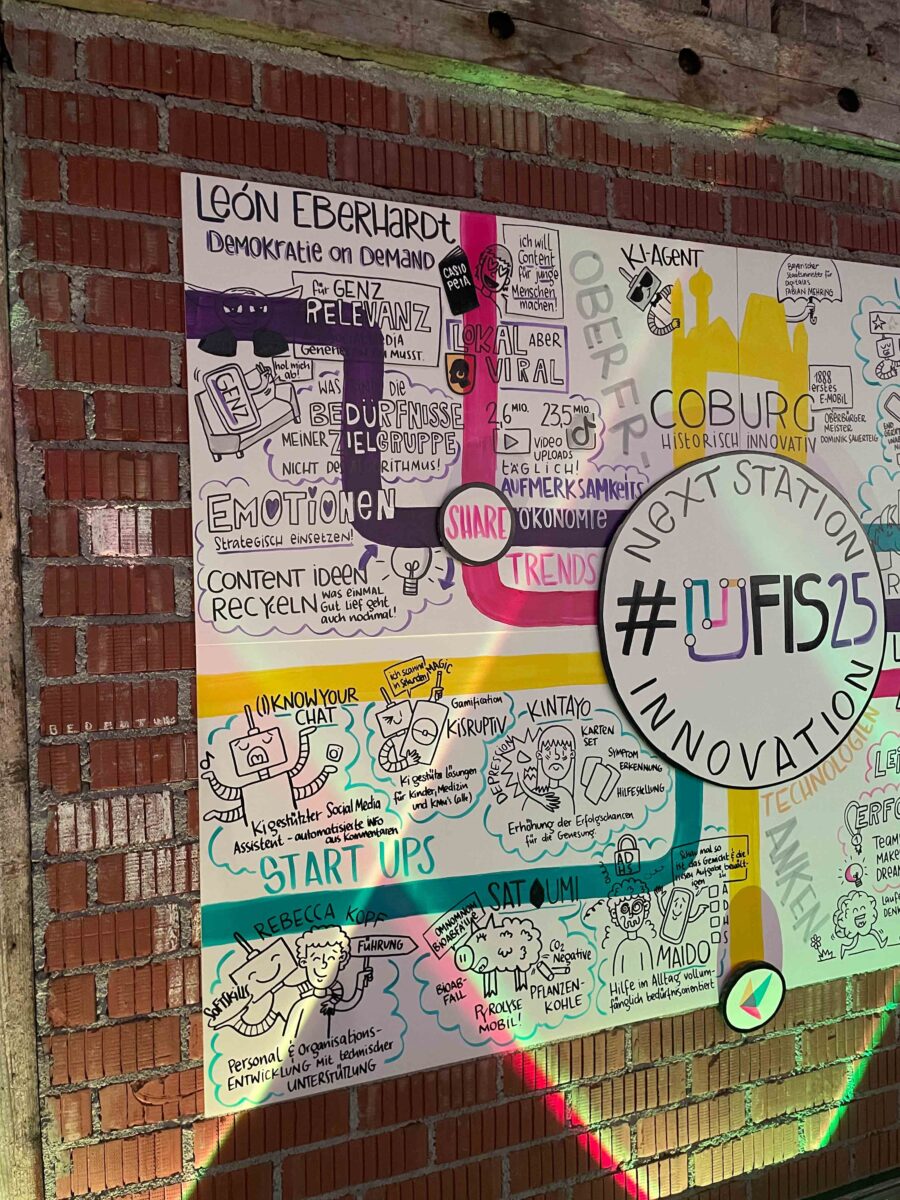 LEÓN EBERHARDT
DEMOKRATIE ON DEMAND
FÜR GENZ
RELEVANZ
MUSST.
hol mich
ab!
GENZ
WAS SIND DIE
BEDÜRFNISSE
MEINER ZIELGRUPPE
NICHT DES ALGORITHMUS!
EMOTIONEN
STRATEGISCH EINSETZEN!
CONTENT IDEEN
RECYCELN
WAS EINMAL
GUT LIEF GEHT
AUCH NOCHMAL!
CASIO
PEIA
ich will
Content
für junge
Menschen
machen!
LOKAL ABER
VIRAL
2,6 MIO. 23,5 MIO.
VIDEO
UPLOADS
TÄGLICH!
AUFMERKSAMKEITS
ÖKONOMIE
SHARE
TRENDS
OBERFR-
ANKEN
KI-AGENT
Bayerischer
Staatsminister für
Digitales
FABIAN MEHRING
1888
erstes
E-MOBIL
OBERBÜRGER
MEISTER
DOMINIK SAUERTEIG
COBURG
HISTORISCH INNOVATIV
NEXT STATION
#UFIS25
INNOVATION
TECHNOLOGIEN
(I) KNOW YOUR
CHAT
KI gestützter Social Media
Assistent - automatisierte INFO
aus Kommentaren
ich scanne
in Sekunden
MAGIC
Gamification
KISRUPTIV
KI gestützte Lösungen
für Kinder, Medizin
und KMU's (alle)
KINTAYO
DEPRESSION
KARTEN
SET
SYMPTOM
ERKENNUNG
HILFESTELLUNG
Erhöhung der Erfolgschancen
für die Genesung
START UPS
REBECCA KOPF
FÜHRUNG
Softskills
Personal & Organisations-
ENTWICKLUNG MIT technischer
UNTERSTÜTZUNG
SATOUMI
OMNOMNOM
BIOABFÄLLE
BIOAB-
FALL
PYROLYSE
MOBIL!
CO2
Negative
PFLANZEN-
KOHLE
AD
HS
Schau mal so
ist das Gewicht & die
riesen Aufgabe bewält-
igen
A
D
H
S
MAIDO
Hilfe im Alltag, vollum-
fänglich bedürfnisorientiert
ERFO
TEAM
MAKE
DREA
LAUF
DENK
BEDEUTUNG